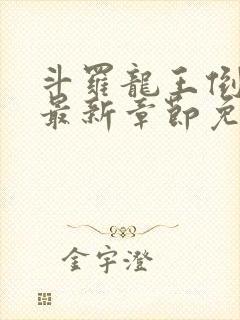 斗羅龍王
最新章節免
金宇澄